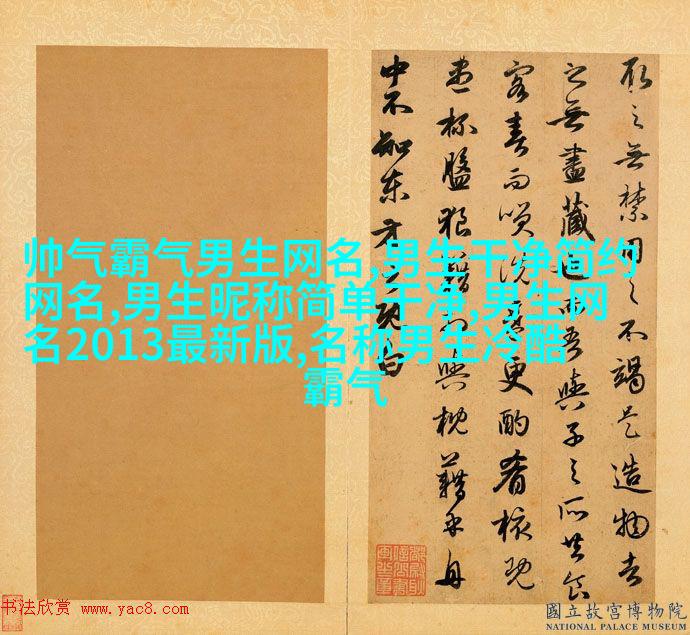 取之無禁用之不竭是造物者
之無盡藏也而吾與子之所共食
客喜而笑洗盞更酌肴核既
盡杯盤狼籍相與枕藉乎舟
中不知東方之既白
帅气霸气男生网名,男生干净简约
网名,男生昵称简单干净,男生网
名2013最新版,名称男生冷酷
霸气
书法欣赏 www.yac8.com
國立故宮博物院
NATIONAL PALACE MUSEUM